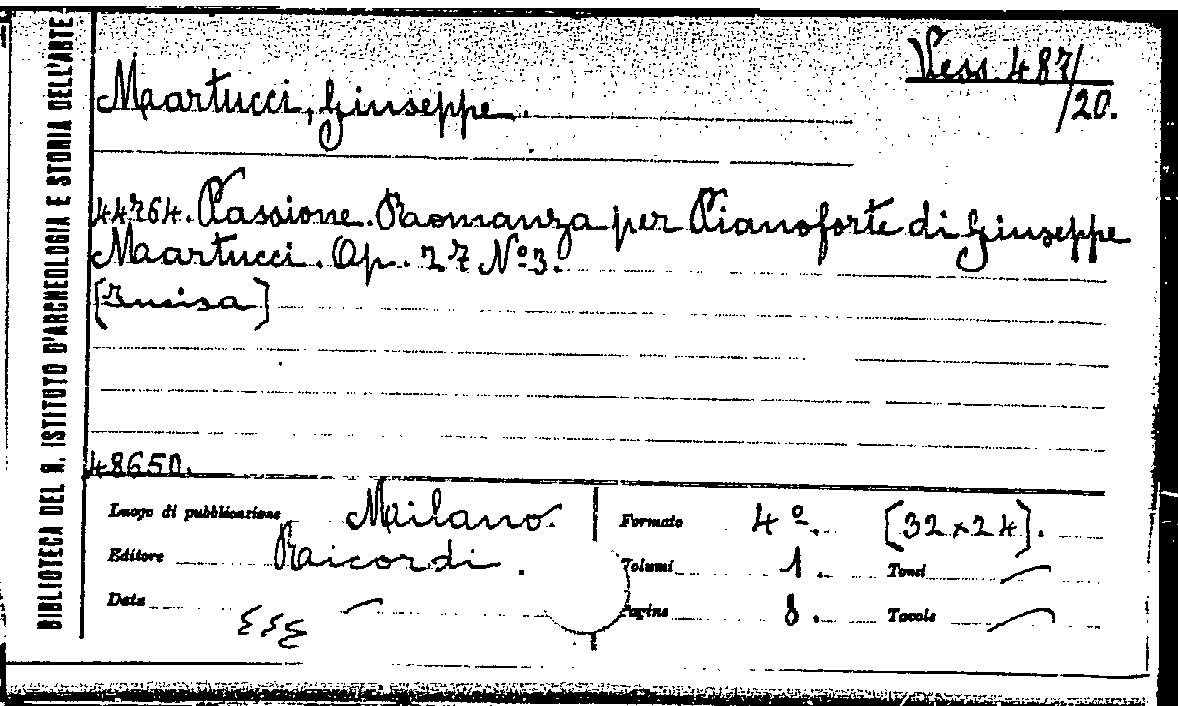 BIBLIOTECA DEL R. ISTITUTO D'ARCHEOLOGIA E STORIA DELL'ARTE
Vess 487/
/20.
Martucci, Giuseppe.
44764. Passione. Romanza per Pianoforte di Giuseppe
Martucci. Op. 27 Nº 3.
[Incisa]
48650.
Luogo di pubblicazione Milano.
Editore Ricordi.
Data —
Formato 4º. [32 x 24].
Volumi 1. Tomi —
Pagine 8. Tavole —